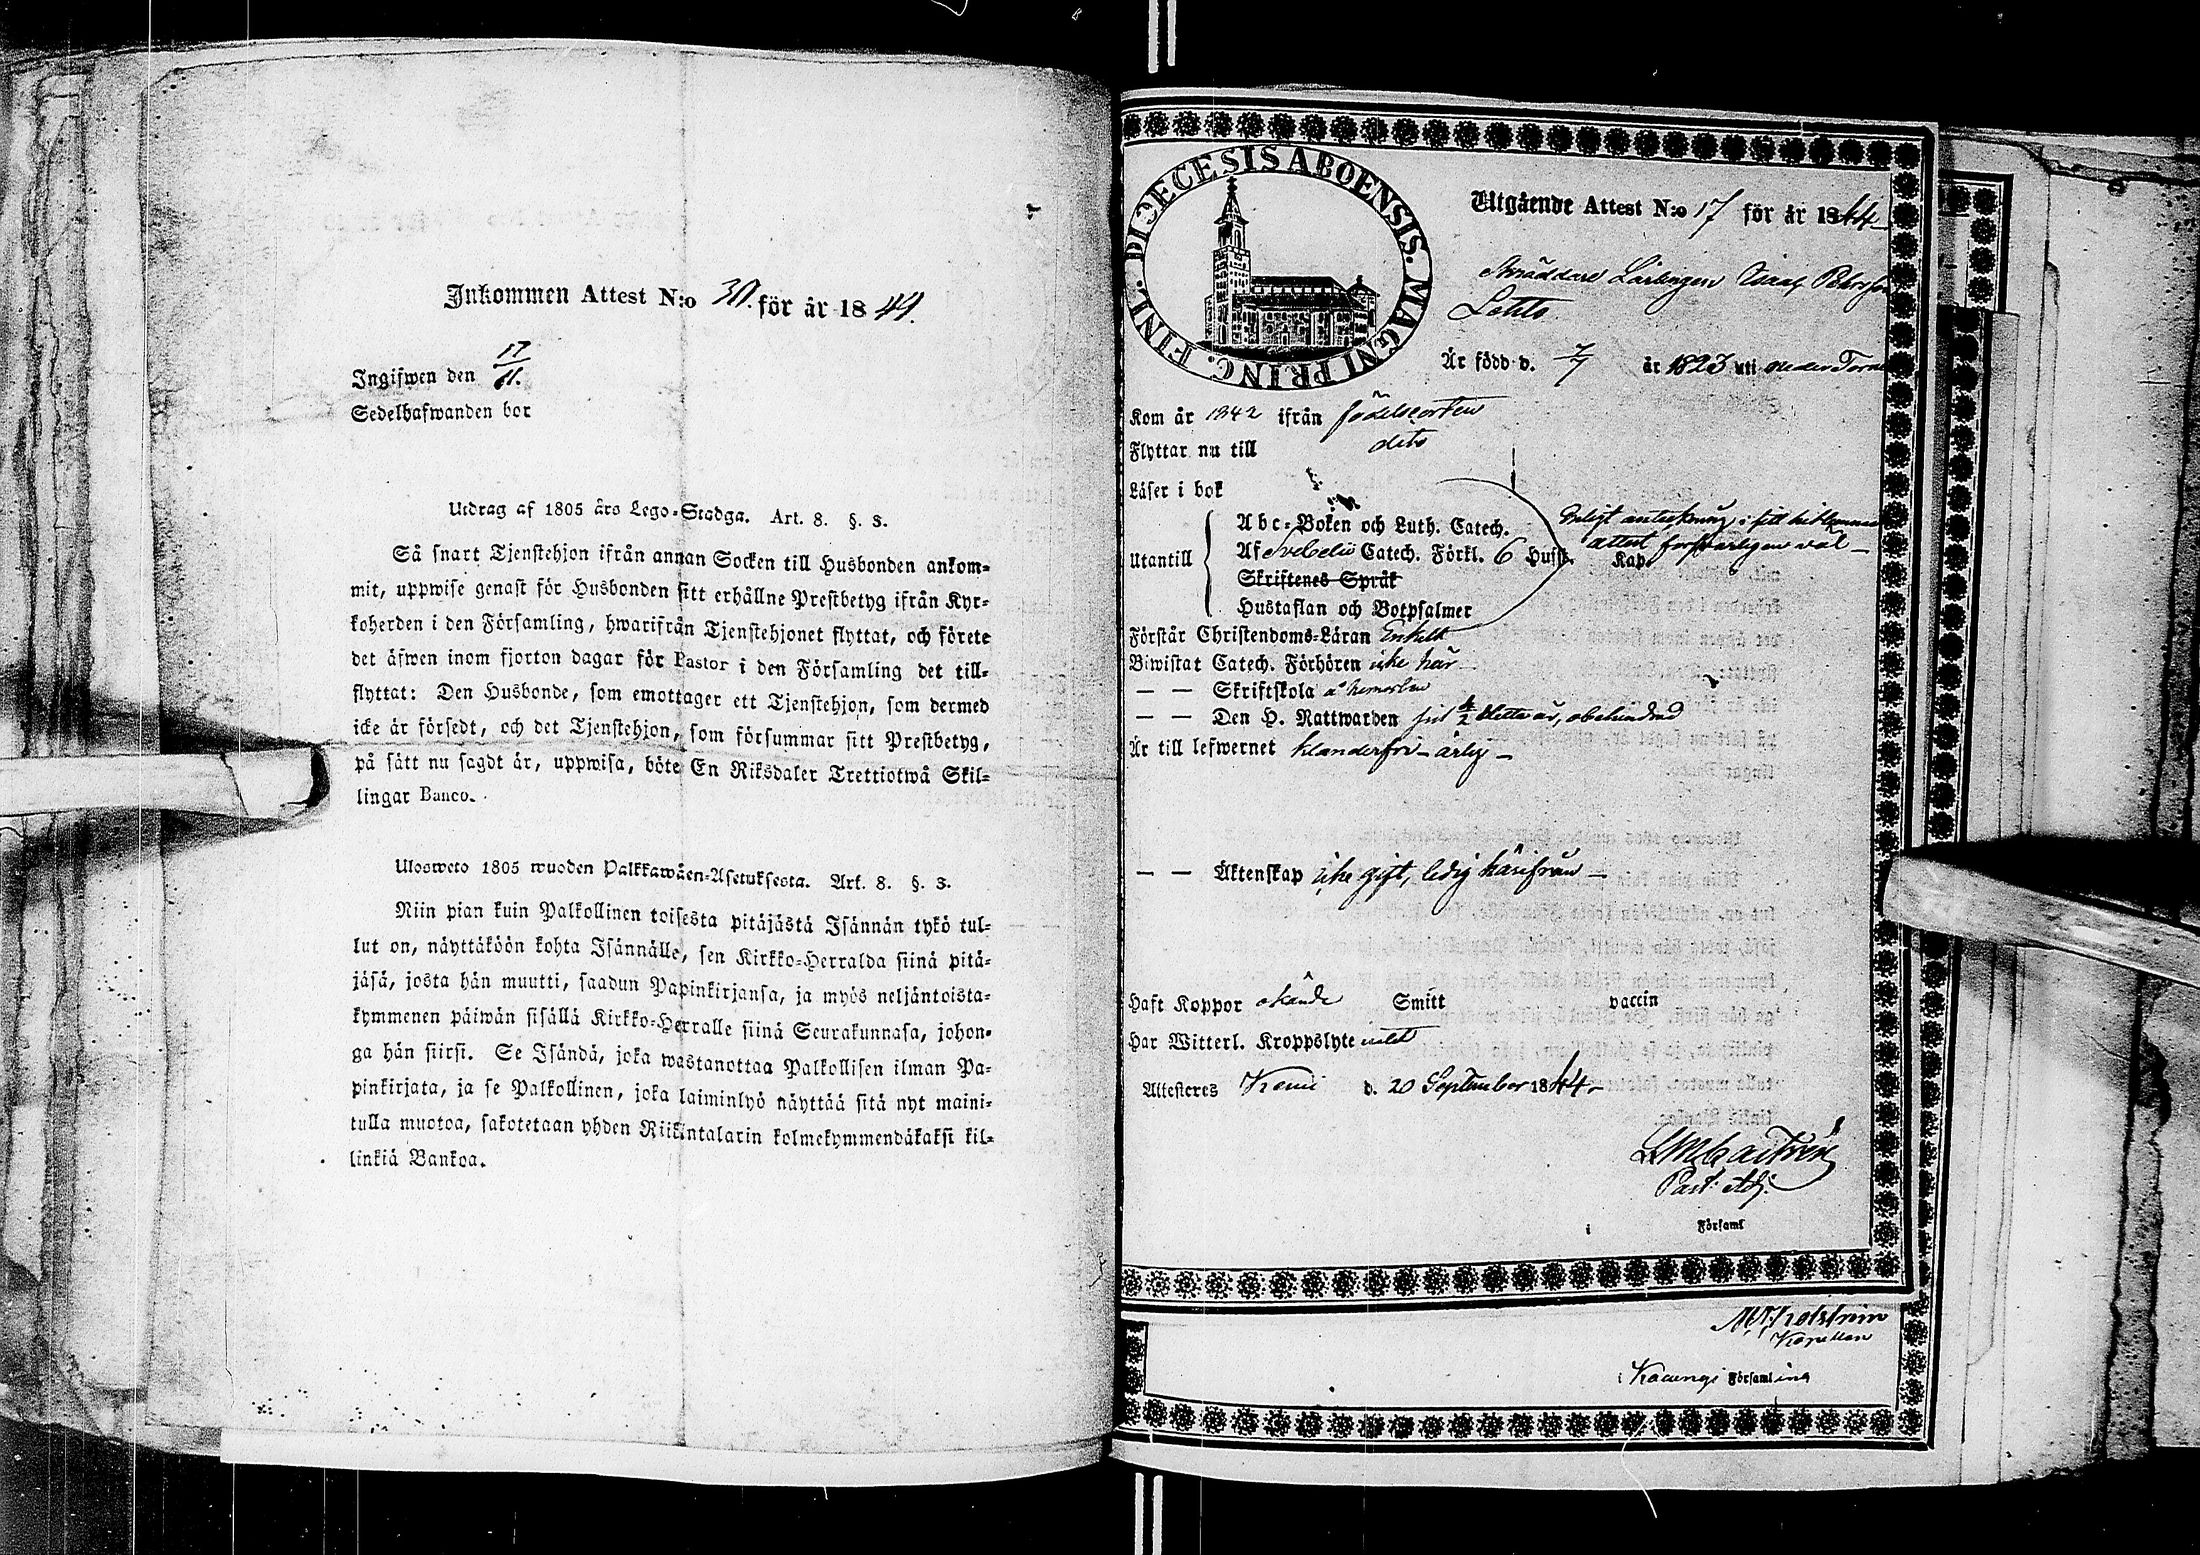 Inkommen Attest N:o 30. för år 1844.
17
Ingifwen den 11.
Sedelhafwanden bor
Utdrag af 1805 års Lego-Stadga. Art. 8. §. 3.
Så snart Tjenstehjon ifrån annan Socken till Husbonden ankom-
mit, uppwise genast för Husbonden sitt erhållne Prestbetyg ifrån Kyr-
koherden i den Församling, hwarifrån Tjenstehjonet flyttat, och förete
det äfwen inom fjorton dagar för Pastor i den Församling det till-
flyttat: Den Husbonde, som emottager ett Tjenstehjon, som dermed
icke är försedt, och det Tjenstehjon, som försummar sitt Prestbetyg,
på sätt nu sagdt är, uppwisa, böte En Riksdaler Trettiotwå Skil-
lingar Banco.
Ulosweto 1805 wuoden Palkkawäen-Asetuksesta. Art. 8. §. 3.
Niin pian kuin Palkollinen toisesta pitäjästä Isännän tykö tul-
lut on, näyttäköön kohta Isännälle, sen Kirkko-Herralda siinä pitä-
jäsä, josta hän muutti, saadun Papinkirjansa, ja myös neljäntoista-
kymmenen päiwän sisällä Kirkko-Herralle siinä Seurakunnasa, johon-
ga hän siirsi. Se Isändä, joka wastanottaa Palkollisen ilman Pa-
pinkirjata, ja se Palkollinen, joka laiminlyö näyttää sitä nyt maini-
tulla muotoa, sakotetaan yhden Riikintalarin kolmekymmendäkaksi kil-
linkiä Bankoa.
DIOECESIS ABOENSIS. MAGNI PRINC. FINL.
Utgående Attest N:o 17 för år 1844
Skräddare Lärlingen Isaac Petersson
Lehto
Är född d. 7/7 år 1823 uti neder Torne
Kom år 1842 ifrån födelseorten
Flyttar nu till dito
Läser i bok
Abc-Boken och Luth. Catech. Enligt anteckning i sitt hitkomna
Utantill Af Svebelii Catech. Förkl. 6 Hufst. Kap. attest försvarligen väl
Skriftenes Språk
Hustaflan och Botpsalmer
Förstår Christendoms-Läran Enkelt
Biwistat Catech. Förhören icke här
— — Skriftskola å hemorten
— — Den H. Nattwarden detta år, obehindrad
Är till lefwernet klanderfri ärlig
— — Äktenskap icke gift, ledig härifrån
Haft Koppor okände Smitt vaccin
Har Witterl. Kroppslyte intet
Attesteres Kemi d. 20 September 1844
L M Castrén
Past: Adj:
i Församl
Kapellan
i Församling